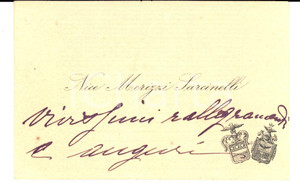 Nice Morizzi Sarcinelli
vivissimi rallegramenti
e auguri